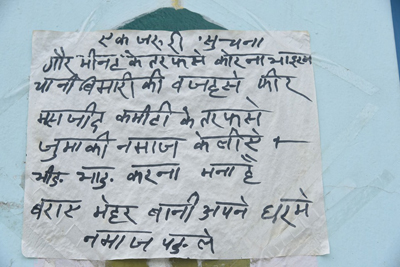 एक जरुरी सुचना
गौरमीनट के तरफ से कोरना वाइरस
यानी बिमारी की वजह से फीर
मसजीद कमीटी के तरफ से
जुमा की नमाज के लीये
भीड़ भाड़ करना मना है
बराए मेहर बानी अपने घर मे
नमाज पढ़ ले